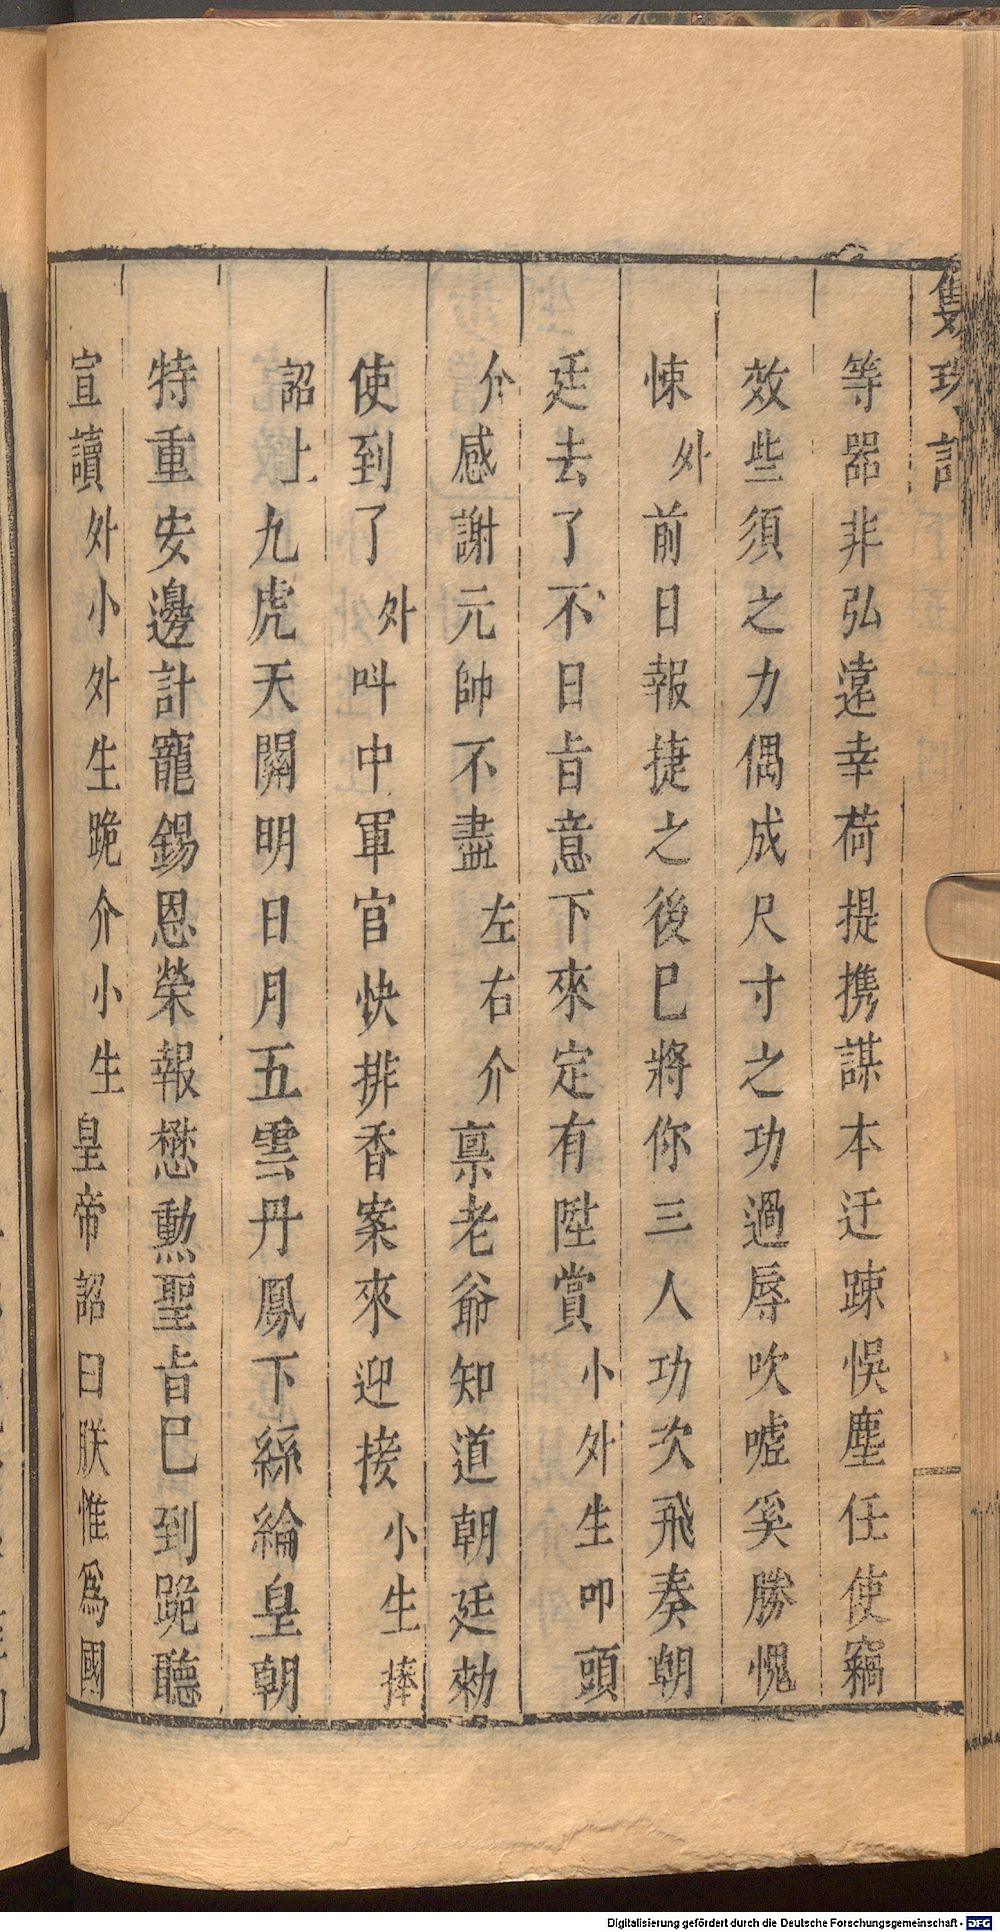 等器非弘遠幸荷提携謀本迂踈悞塵任使竊
效些須之力偶成尺寸之功過辱吹嘘奚勝愧
悚外前日報捷之後巳將你三人功次飛奏朝
廷去了不日㫖意下來定有陞賞小外生叩頭
介感謝元帥不盡左右介禀老爺知道朝廷勑
使到了外呌中軍官快排香案來迎接小生捧
詔上九虎天關明日月五雲丹鳳下絲綸皇朝
特重安邊計寵錫恩榮報懋勲聖㫖巳到跪聽
宣讀外小外生跪介小生皇帝詔曰朕惟爲國
Digitalisierung gefördert durch die Deutsche Forschungsgemeinschaft - DFG